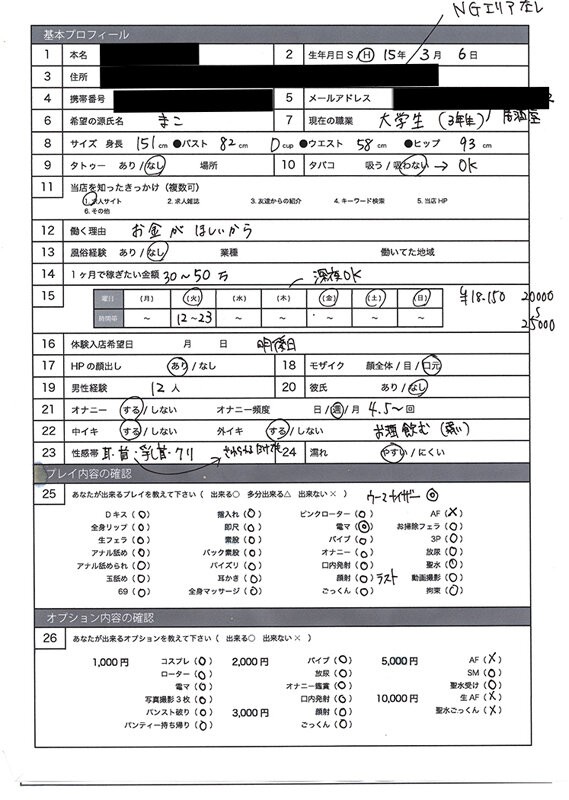 NGエリアなし
基本プロフィール
1 本名 2 生年月日 S / H 15年 3月 6日
3 住所
4 携帯番号 5 メールアドレス
6 希望の源氏名 まこ 7 現在の職業 大学生(3年生) 居酒屋
8 サイズ 身長 151cm ●バスト 82cm Dcup ●ウエスト 58cm ●ヒップ 93cm
9 タトゥー あり/なし 場所 10 タバコ 吸う/吸わない → OK
11 当店を知ったきっかけ(複数可)
1. 求人サイト 2. 求人雑誌 3. 友達からの紹介 4. キーワード検索 5. 当店HP
6. その他
12 働く理由 お金がほしいから
13 風俗経験 あり/なし 業種 働いてた地域
14 1ヶ月で稼ぎたい金額 30~50万 深夜OK
15 曜日 (月) (火) (水) (木) (金) (土) (日) ¥18.150 20000
時間帯 ~ 12~23 ~ ~ ~ ~ ~ 25000
16 体験入店希望日 月 日
17 HPの顔出し あり/なし 18 モザイク 顔全体/目/口元
19 男性経験 12人 20 彼氏 あり/なし
21 オナニー する/しない オナニー頻度 日/週/月 4.5~回
22 中イキ する/しない 外イキ する/しない お酒飲む(弱い)
23 性感帯 耳・首・乳首・クリ 24 濡れ やすい/にくい
プレイ内容の確認
25 あなたが出来るプレイを教えて下さい(出来る○ 多分出来る△ 出来ない×) ウーマナイザー◎
Dキス(○) 指入れ(○) ピンクローター(○) AF(×)
全身リップ(○) 即尺(○) 電マ(◎) お掃除フェラ(○)
生フェラ(○) 素股(○) バイブ(○) 3P(○)
アナル舐め(○) バック素股(○) オナニー(○) 放尿(○)
アナル舐められ(○) パイズリ(○) 口内発射(○) 聖水(○)
玉舐め(○) 耳かき(○) 顔射(○) ラスト 動画撮影(○)
69(○) 全身マッサージ(○) ごっくん(○) 拘束(○)
オプション内容の確認
26 あなたが出来るオプションを教えて下さい(出来る○ 出来ない×)
1,000円 コスプレ(○) 2,000円 バイブ(○) 5,000円 AF(×)
ローター(○) 放尿(○) SM(○)
電マ(○) オナニー鑑賞(○) 聖水受け(○)
写真撮影3枚(○) 口内発射(○) 10,000円 生AF(×)
パンスト破り(○) 3,000円 顔射(○) 聖水ごっくん(×)
パンティー持ち帰り(○) ごっくん(○)